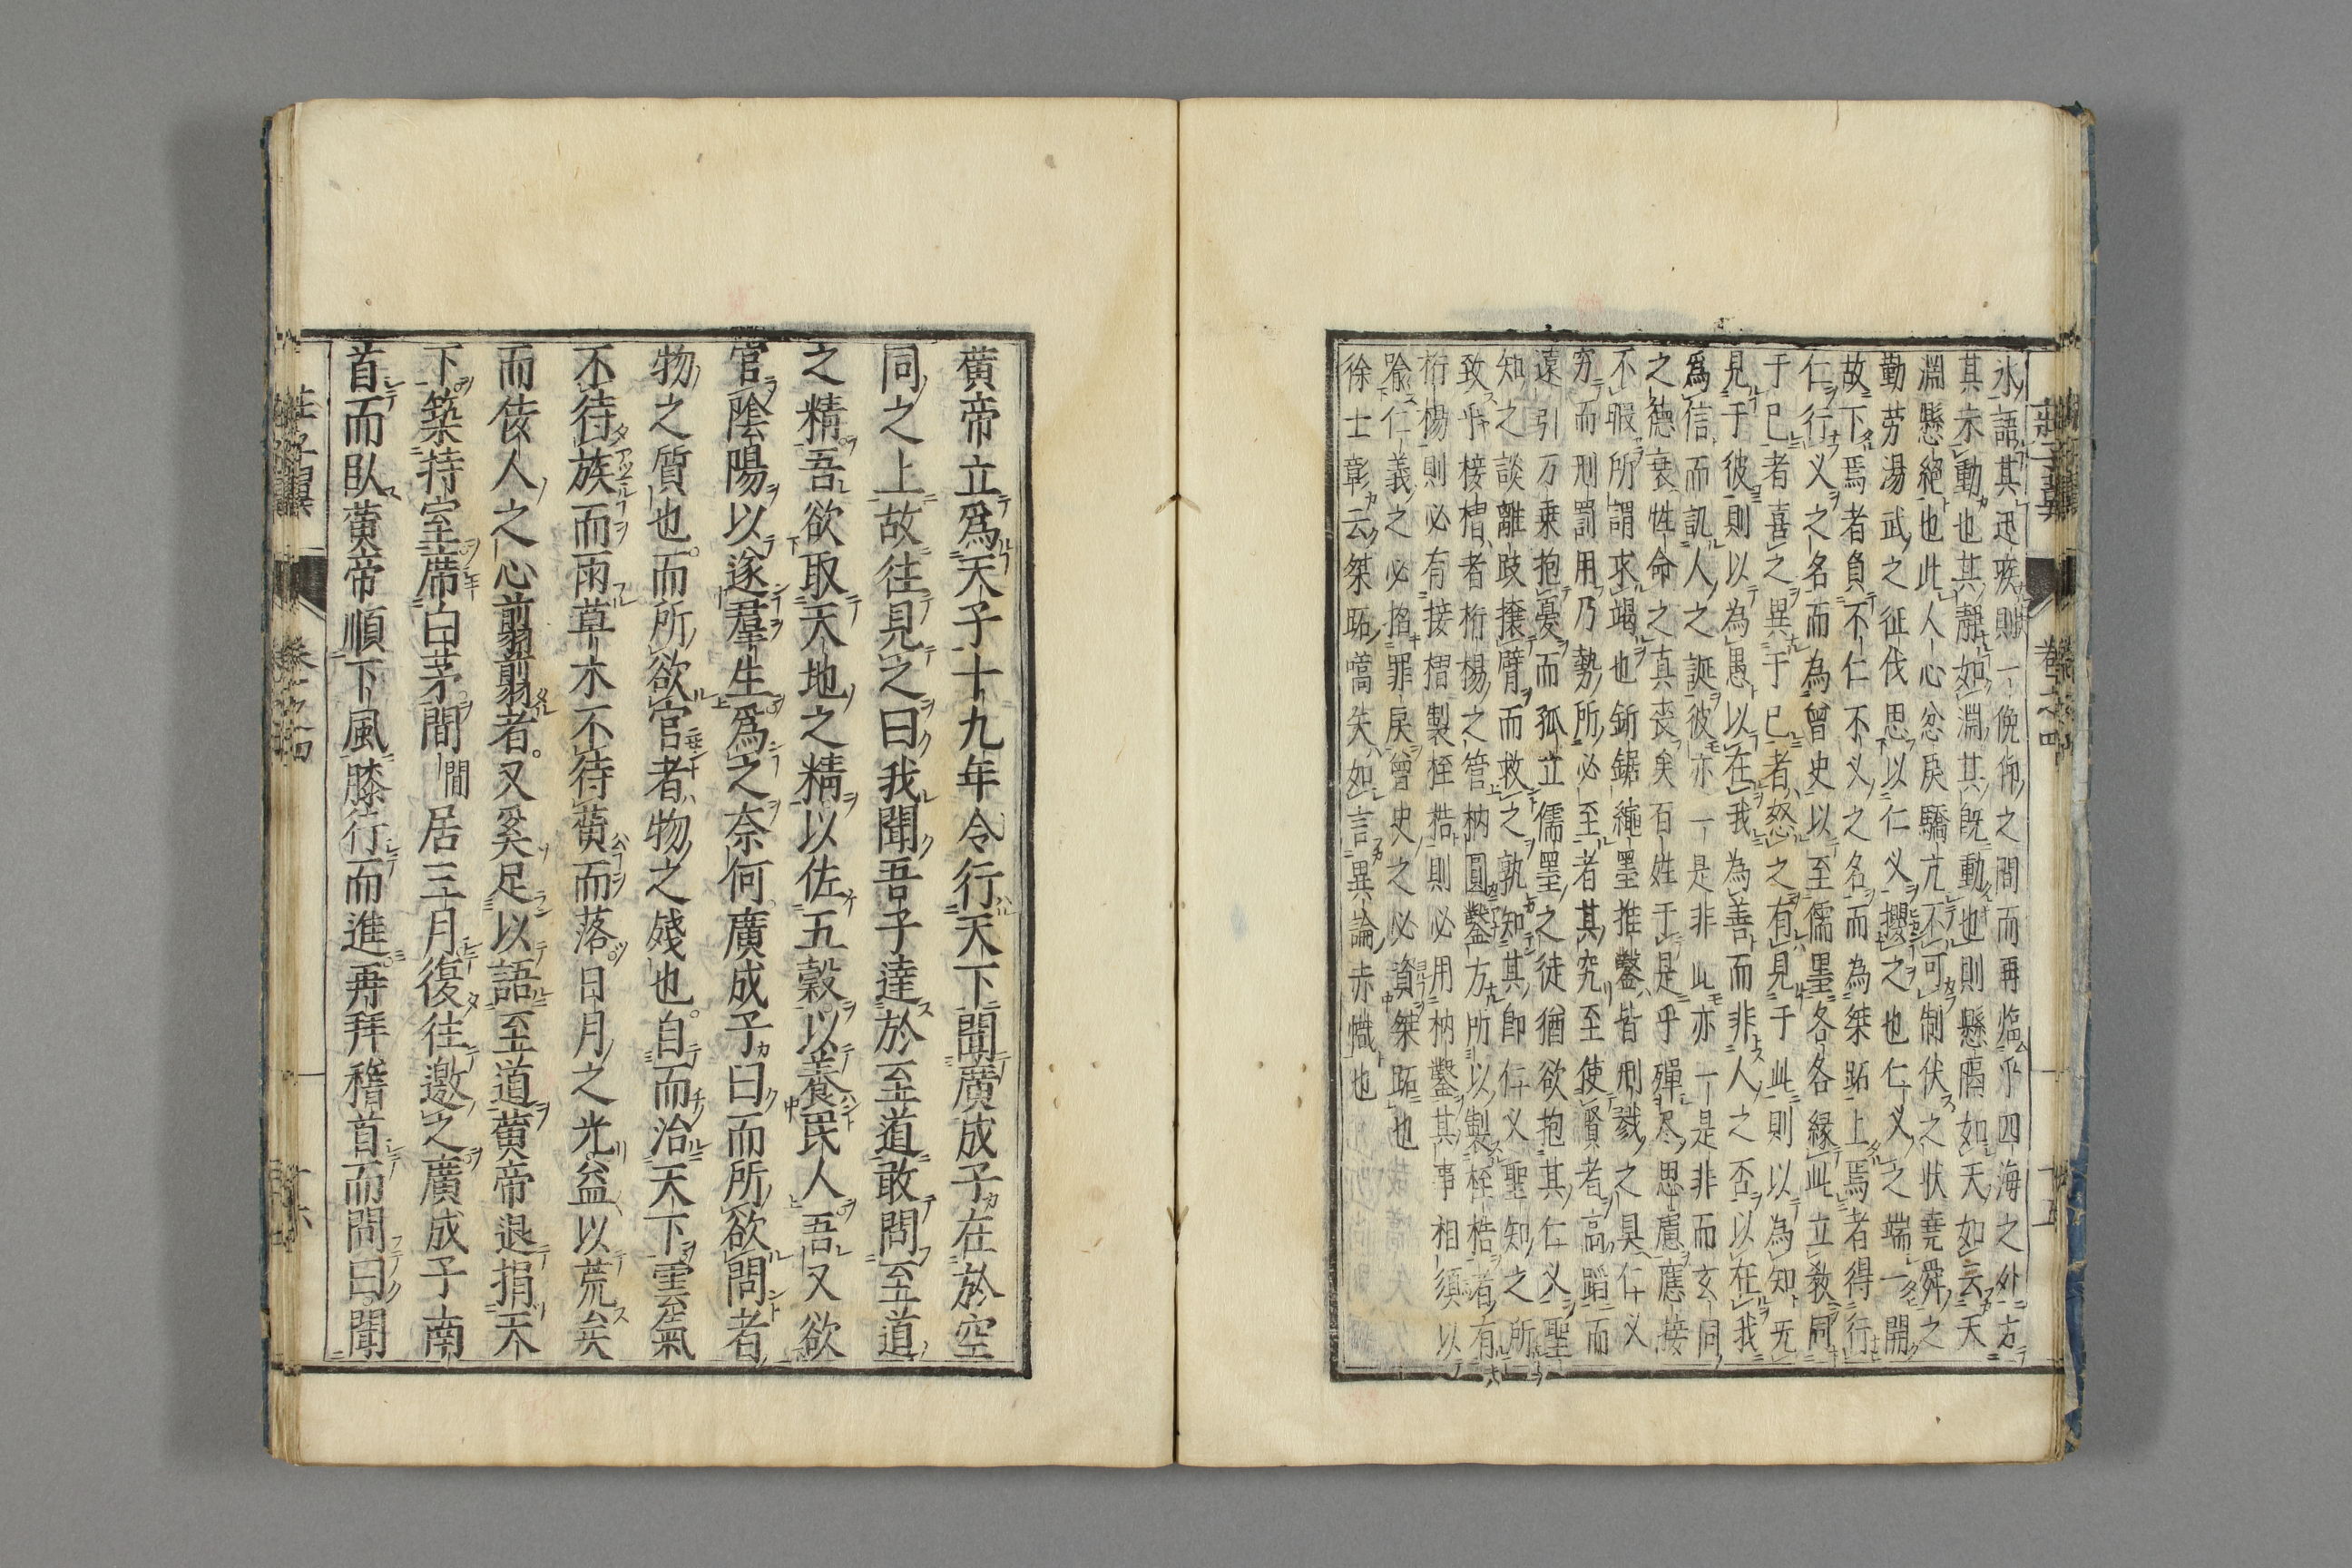 氷語其迅疾則一俛仰之間而再臨乎四海之外言
其未動也其靜如淵其既動也則懸隔如天如云天
淵懸絕也此人心忿戾驕亢不可制伏之状堯舜之
勤劳湯武之征伐思以仁义攖之也仁义之端一開
故下焉者負不仁不义之名而為桀跖上焉者得行
仁行义之名而為曾史以至儒墨各各緣此立教同
于已者喜之異于已者怒之有見于此則以為知无
見于彼則以為愚以在我為善而非人之否以在我
爲信而訊人之誕彼亦一是非此亦一是非而玄同
之德衰性命之真喪矣百姓于是乎殫尽思慮應接
不暇所謂求竭也斱鋸繩墨推鑿皆刑戮之具仁义
穷而刑罰用乃勢所必至者其究至使賢者高蹈而
遠引万乗抱憂而孤立儒墨之徒猶欲抱其仁义聖
知之談離跂攘臂而救之孰知其即仁义聖知之所
致乎椄槢者桁楊之管枘圓鑿方所以製桎梏者有
桁楊則必有接摺製桎梏則必用枘鑿其事相須以
喩仁義之必掊罪戾曾史之必資桀跖也
徐士彰云桀跖嚆矢如言異論赤幟也
黄帝立爲天子十九年令行天下聞廣成子在於空
同之上故往見之曰我聞吾子達於至道敢問至道
之精吾欲取天地之精以佐五穀以養民人吾又欲
官陰陽以遂羣生爲之奈何廣成子曰而所欲問者
物之質也而所欲官者物之殘也自而治天下雲氣
不待族而雨草木不待黄而落日月之光益以荒矣
而佞人之心翦翦者又奚足以語至道黄帝退捐天
下築特室席白茅間閒居三月復往邀之廣成子南
首而臥黄帝順下風膝行而進再拜稽首而問曰聞